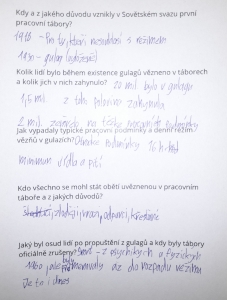 Kdy a z jakého důvodu vznikly v Sovětském svazu první
pracovní tábory?
1918 - Pro ty, kteří nesouhlasí s režimem
1930 - gulag
Kolik lidí bylo během existence gulagů vězněno v táborech
a kolik jich v nich zahynulo? 20 mil bylo v gulagu
1,5 mil z toho polovina zahynula
2 mil. zemřelo na následky
Jak vypadaly typické pracovní podmínky a denní režim
vězňů v gulazích? podmínky 16 h
minimum jídla a pití
Kdo všechno se mohl stát obětí uvězněnou v pracovním
táboře a z jakých důvodů?
zloději, vrazi, odpůrci, křesťané
Jaký byl osud lidí po propuštění z gulagů a kdy byly tábory
oficiálně zrušeny? z psychických a fyzických
1960 ale až do rozpadu
je to i dnes